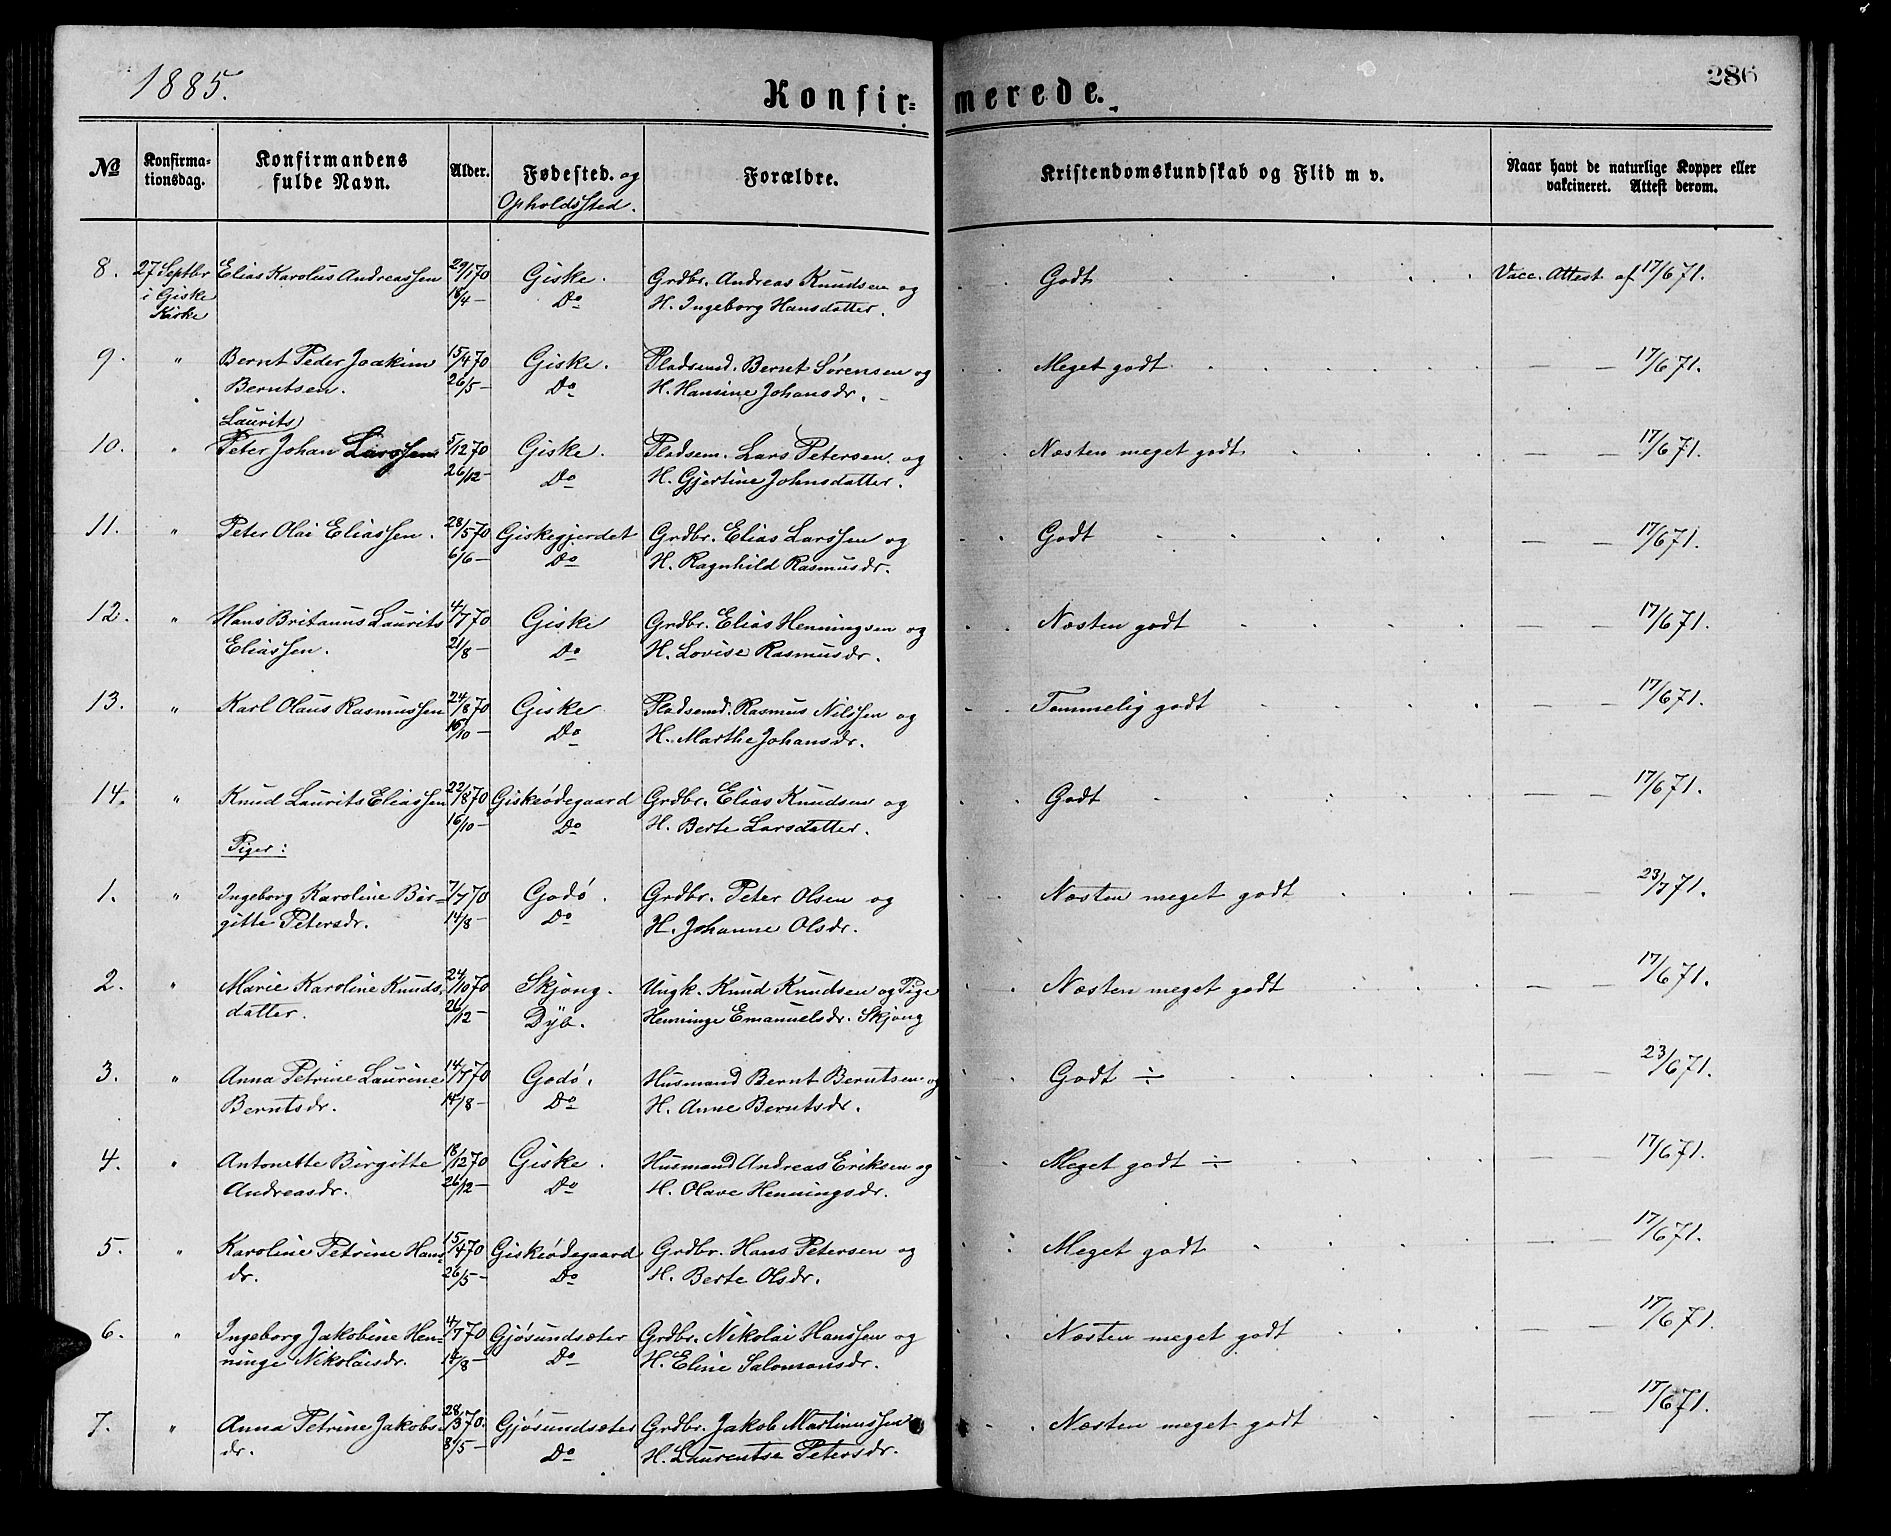 1885.
Konfir=
merede.
286
No
Konfirma-
tionsdag.
Konfirmandens
fulde Navn.
Alder.
Fødested. og
Opholdssted.
Forældre.
Kristendomskundskab og Flid m v.
Naar havt de naturlige Kopper eller
vakcineret. Attest derom.
8. 27 Septbr Elias Karolus Andreassen 29/1 70 Giske. Grdbr. Andreas Knudsen og Godt Vacc. Attest af 17/6 71.
i Giske 18/4 — Do H. Ingeborg Hansdatter.
Kirke
9. " Bernt Peder Joakim 15/4 70 Giske. Pladsemd. Bernt Sørensen og Meget godt — — 17/6 71.
Berntsen. 26/5 — Do H. Hansine Johansdr.
Laurits
10. " Peter Johan Larssen 5/12 70 Giske. Pladsem. Lars Petersen og Næsten meget godt — — 17/6 71.
26/12 — Do H. Gjertine Johnsdatter.
11. " Peter Olai Eliassen. 28/5 70 Giskegjerdet Grdbr. Elias Larssen og Godt — — 17/6 71.
6/6 — Do H. Ragnhild Rasmusdr.
12. " Hans Britanus Laurits 4/7 70 Giske Grdbr. Elias Henningsen og Næsten godt — — 17/6 71.
Eliassen. 21/8 — Do H. Lovise Rasmusdr.
13. " Karl Olaus Rasmussen 24/8 70 Giske Pladsemd. Rasmus Nilssen og Temmelig godt — — 17/6 71.
16/10 — Do H. Marthe Johansdr.
14. " Knud Laurits Eliassen 22/8 70 Giskeødegaard Grdbr. Elias Knudsen og Godt — — 17/6 71.
16/10 — Do H. Berte Larsdatter.
Piger:
1. " Ingeborg Karoline Bir= 7/7 70 Godø. Grdbr. Peter Olsen og Næsten meget godt — — 23/7 71.
gitte Petersdr. 14/8 — Do H. Johanne Olsdr.
2. " Marie Karoline Knuds. 24/10 70 Skjong. Ungk. Knud Knudsen og Pige Næsten meget godt — — 17/6 71.
datter. 26/12 — Dyb. Henninge Emanuelsdr. Skjong
3. " Anna Petrine Laurine 14/7 70 Godø. Husmand Bernt Berntsen og Godt ÷ — — 23/6 71.
Berntsdr. 14/8 — Do H. Anne Berntsdr.
4. " Antonette Birgitte 18/12 70 Giske. Husmand Andreas Eriksen og Meget godt ÷ — — 17/6 71.
Andreasdr. 26/12 — Do H. Olave Henningsdr.
5. " Karoline Petrine Hans= 15/4 70 Giskeødegaard Grdbr. Hans Petersen og Meget godt — — 17/6 71.
dr. 26/5 — Do H. Berte Olsdr.
6. " Ingeborg Jakobine Hen= 4/7 70 Gjøsundsæter Grdbr. Nikolai Hanssen og Næsten meget godt — — 17/6 71.
ninge Nikolaisdr. 14/8 — Do H. Eline Salomonsdr.
7. " Anna Petrine Jakobs= 28/3 70. Gjøsundsæter Grdbr. Jakob Martinussen Næsten meget godt — — 17/6 71.
dr. 8/5 — Do H. Laurentse Petersdr.